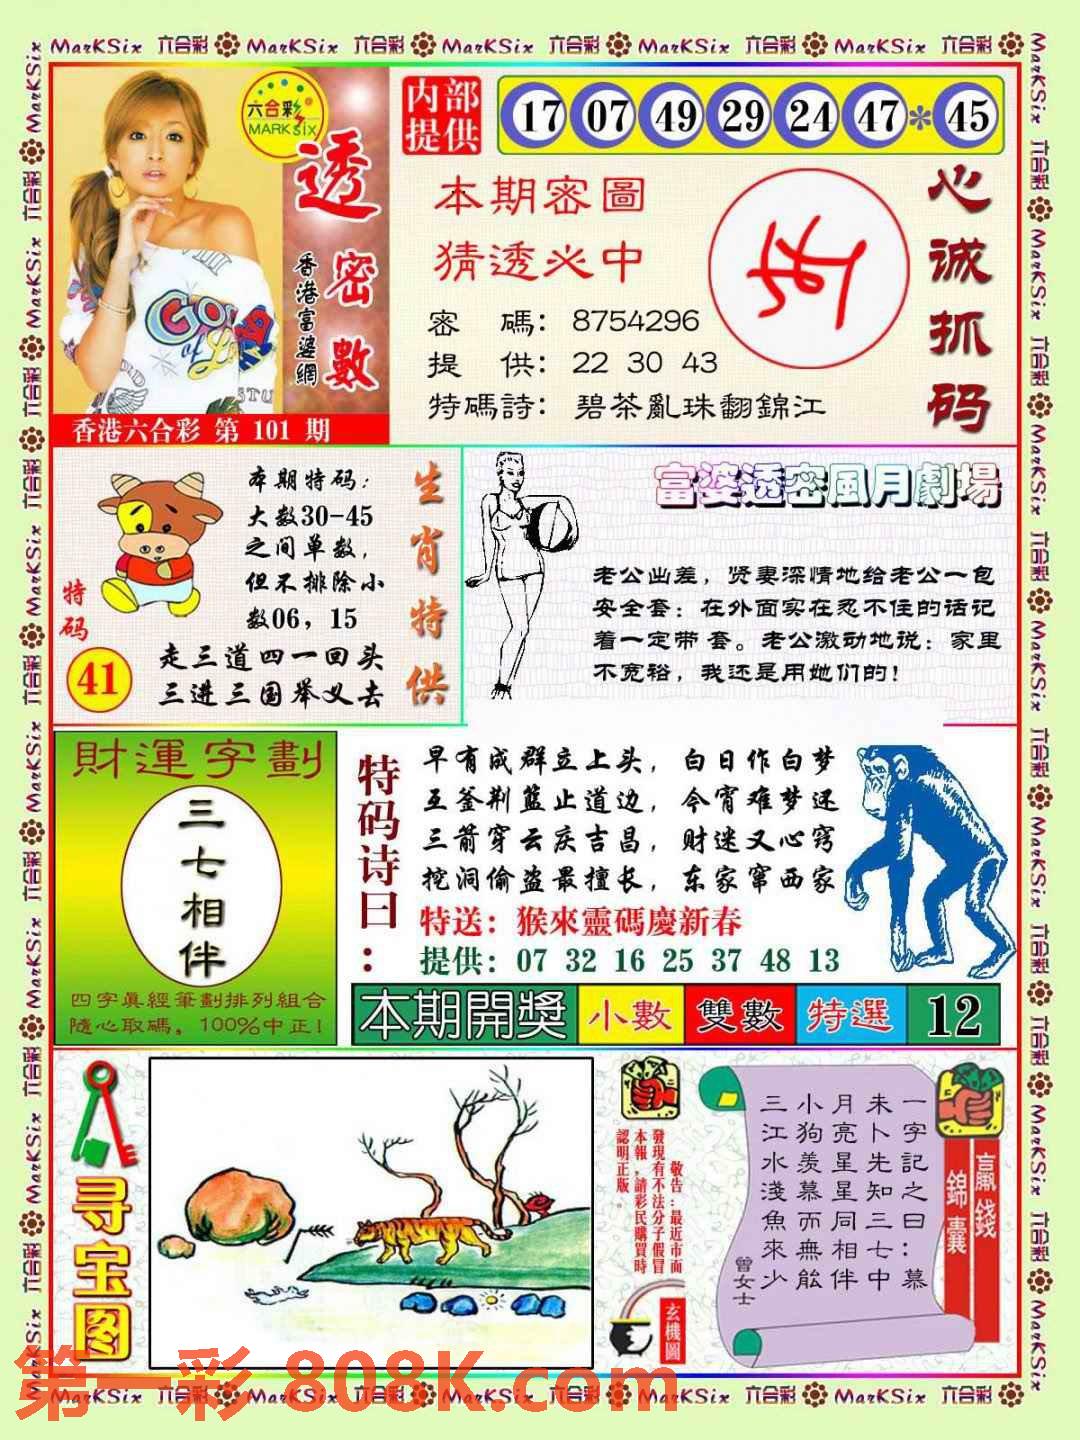 MarKSix 六合彩 MarKSix 六合彩 MarKSix 六合彩 MarKSix 六合彩 MarKSix 六合彩
六合彩
MARK SIX
透密數
香港富婆網
香港六合彩 第 101 期
内部
提供
17 07 49 29 24 47 * 45
本期密圖
猜透必中
密 碼: 8754296
提 供: 22 30 43
特碼詩: 碧茶亂珠翻錦江
心诚抓码
本期特码:
大数30-45
之间单数,
但不排除小
数06, 15
生肖特供
特码
41
走三道四一回头
三进三国举义去
富婆透密風月劇場
老公出差, 贤妻深情地给老公一包
安全套: 在外面实在忍不住的话记
着一定带 套。老公激动地说: 家里
不宽裕, 我还是用她们的!
財運字劃
三七相伴
四字眞經筆劃排列組合
隨心取碼。100%中正!
特码诗曰:
早有成群立上头, 白日作白梦
互釜荆篮止道边, 今宵难梦还
三箭穿云庆吉昌, 财迷又心窍
挖洞偷盗最擅长, 东家窜西家
特送: 猴來靈碼慶新春
提供: 07 32 16 25 37 48 13
本期開獎 小數 雙數 特選 12
寻宝图
敬告:最近市面
發現有不法分子假冒
本報,請彩民購買時
認明正版。
玄機圖
贏錢
錦囊
一字記之曰:慕
未卜先知三七中
月亮星星同相伴
小狗羡慕而無能
三江水淺魚來少
曾女士
第一彩 808K.com
MarKSix 六合彩 MarKSix 六合彩 MarKSix 六合彩 MarKSix 六合彩 MarKSix 六合彩